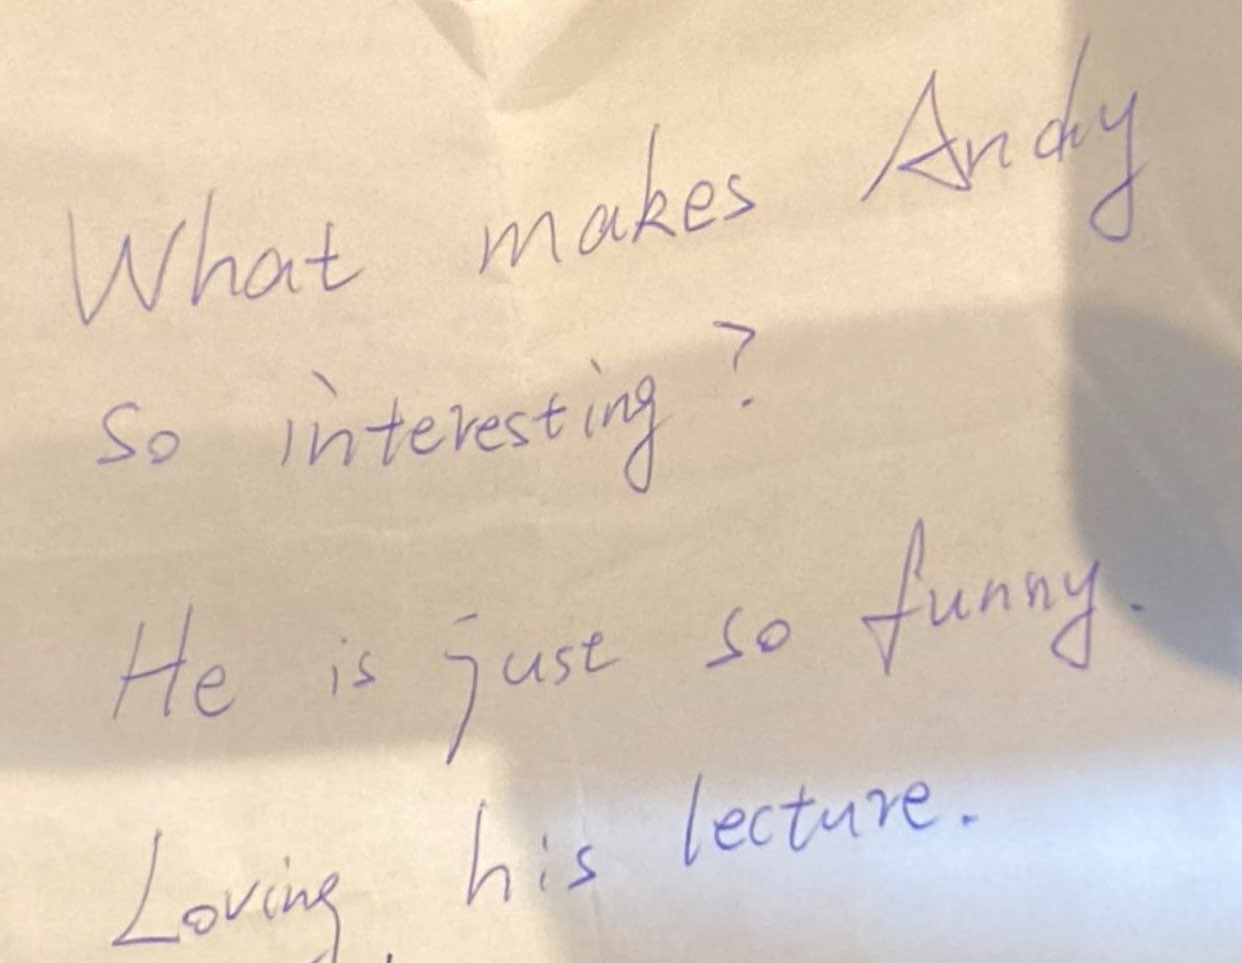 What makes Andy
so interesting?
He is just so funny.
Loving his lecture.